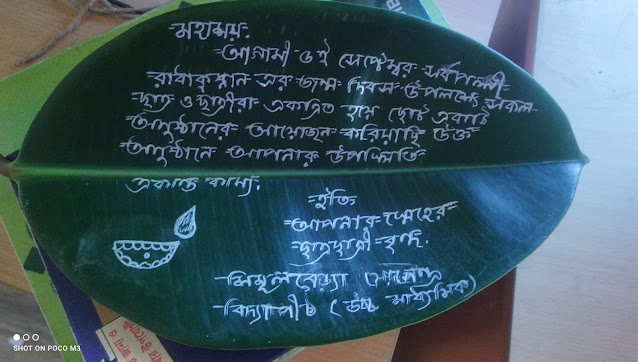 মহাশয়,
আগামী ৫ই সেপ্টেম্বর সর্বপল্লী
রাধাকৃষ্নান সর জন্ম দিবস উপলক্ষে সকল
ছাত্র ও ছাত্রীরা একত্রিত হয়ে ছোট একটি
অনুষ্ঠানের আয়োজন করিয়াছি উক্ত
অনুষ্ঠানে আপনার উপস্থিতি
একান্ত কাম্য.
ইতি
আপনার স্নেহের
ছাত্রছাত্রী বৃন্দ.
বিদ্যাপীঠ (উচ্চ মাধ্যমিক)
SHOT ON POCO M3